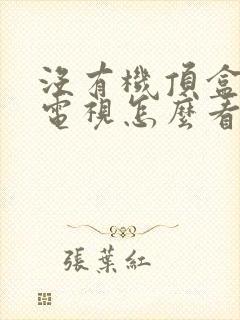 沒有機頂盒
電視怎麼看
張葉紅